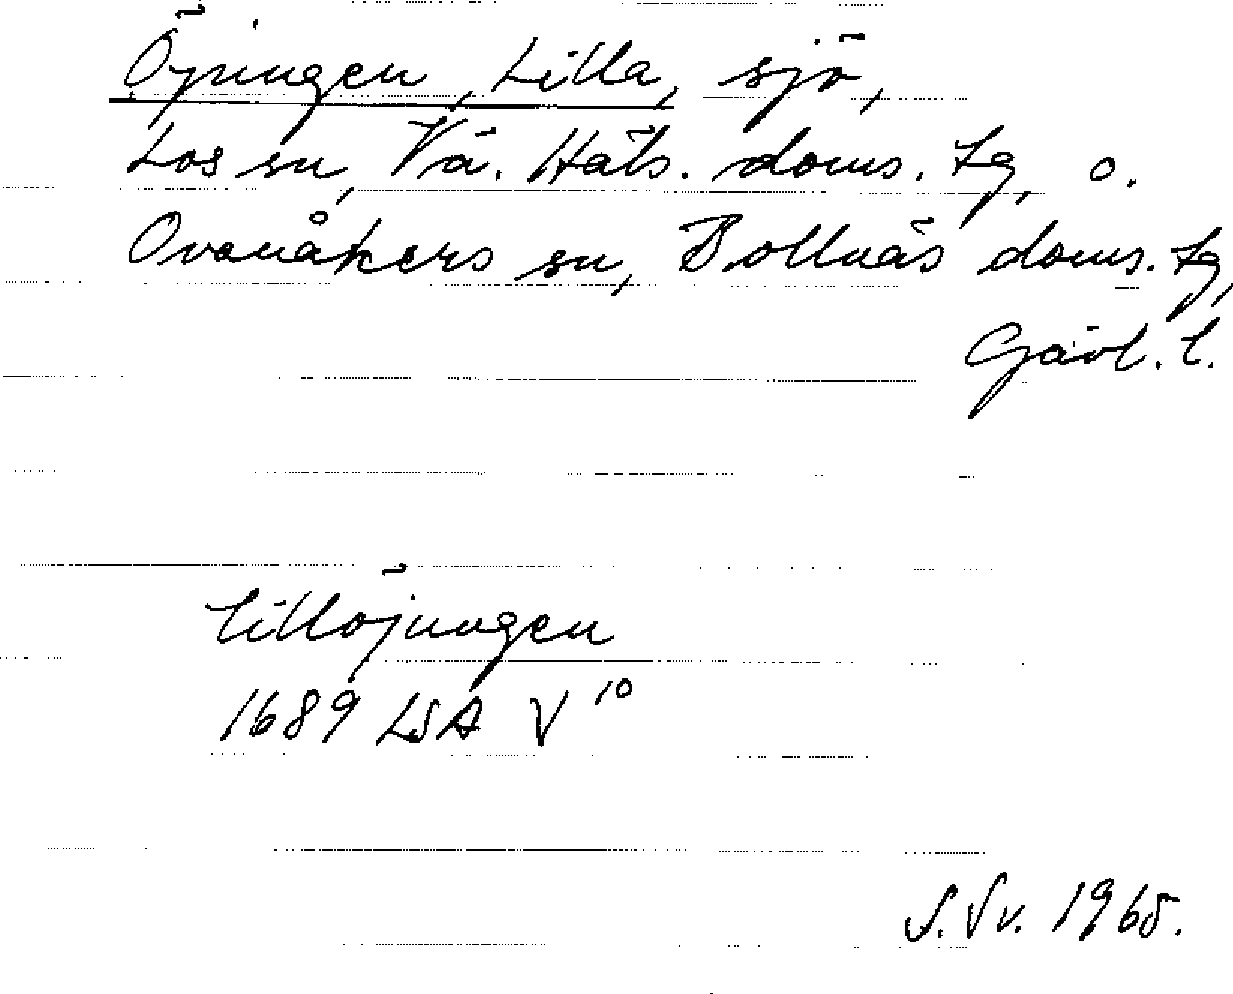 Öjingen, Lilla, sjö,
Los sn, Vä. Häls. doms. tg, o.
Ovanåkers sn, Bollnäs doms. tg,
Gävl. l.
lillöjungen
1689 LSA V 10
S. Sv. 1965.